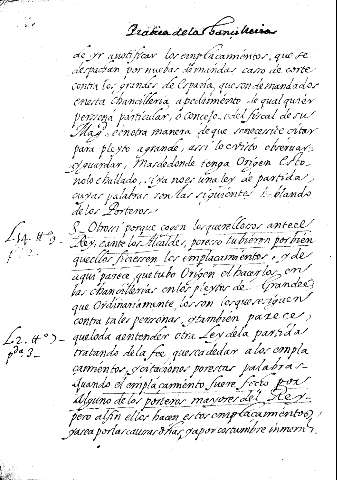 Pratica de la Chancilleria
de yr a notificar los emplaçamientos, que se
despachan por nuebas demandas caso de corte
contra los grandes de España, que son demandados
en esta Chancilleria, a pedimiento de qualquier
persona particular, o concejo, o del fiscal de su
Magd. o en otra manera de que se necessite citar
para pleyto a grande, assi lo e visto observar
y guardar, Mas de donde tenga Origen esto
no lo e hallado, si ya no es una ley de partida,
cuyas palabras son las siguientes hablando
de los Porteros
§ Otrosi porque cosen los querellosos ante el
Rey, e ante los Alcaldes, por esso tubieron por bien
que ellos ficiessen los emplacamientos, y de
aqui parece que tubo Origen el hacerlos, en
las chancillerias en los pleytos de Grandes
que Ordinariamente los son los que se siguen
contra tales personas, y tambien parece,
que lo da a entender otra Ley de la partida
tratando de la fee que se a de dar a los empla
çamientos, y citaciones por estas palabras
quando el emplaçamiento fuere fecho por
Alguno de los porteros mayores del Rey
pero al fin ellos hacen estos emplaçamientos,
y a sea por las causas dhas, y a por costumbre inmem